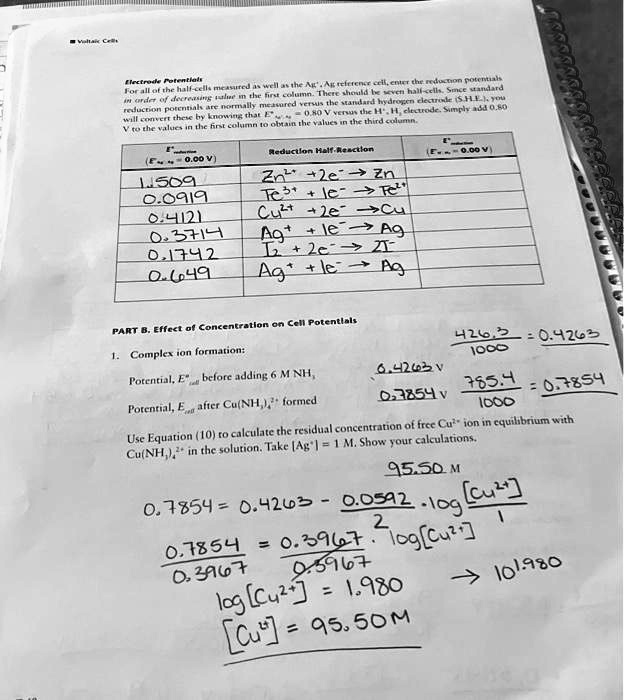 ■ Voltaic Cells
Electrode Potentials
For all of the half-cells measured as well as the Ag⁺, Ag reference cell, enter the reduction potentials
in order of decreasing value in the first column. There should be seven half-cells. Since standard
reduction potentials are normally measured versus the standard hydrogen electrode (S.H.E.), you
will convert these by knowing that E° = 0.80 V versus the H⁺, H₂ electrode. Simply add 0.80
V to the values in the first column to obtain the values in the third column.
E° reduction Reduction Half-Reaction E° reduction
= 0.00 V) = 0.00 V)
1.1509 Zn²⁺ + 2e⁻ → Zn
0.0919 Fe³⁺ + 1e⁻ → Fe²⁺
0.4121 Cu²⁺ + 2e⁻ → Cu
0.3714 Ag⁺ + 1e⁻ → Ag
0.1742 I₂ + 2e⁻ → 2I⁻
0.649 Ag⁺ + 1e⁻ → Ag
PART B. Effect of Concentration on Cell Potentials
426.3 / 1000 = 0.4263
1. Complex ion formation:
Potential, E° cell before adding 6 M NH₃ 0.4263 V
785.4 / 1000 = 0.7854
Potential, E cell after Cu(NH₃)₄²⁺ formed 0.7854 V
Use Equation (10) to calculate the residual concentration of free Cu²⁺ ion in equilibrium with
Cu(NH₃)₄²⁺ in the solution. Take [Ag⁺] = 1 M. Show your calculations.
95.50 M
0.7854 = 0.4263 - 0.0592 / 2 · log [Cu²⁺] / 1
0.7854 / 0.3967 = 0.3967 / 0.3967 · log[Cu²⁺]
log[Cu²⁺] = 1.980 → 10^1.980
[Cu²⁺] = 95.50M